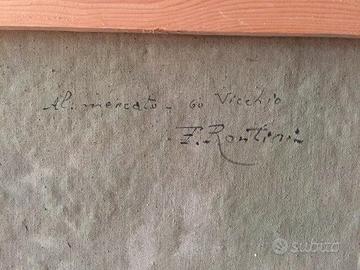 Al. mercato - 60 Vicchio
F. Rontini
subito